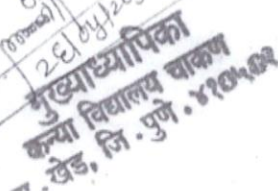 26/04/20
मुख्याध्यापिका
कन्या विद्यालय चाकण
खेड, जि. पुणे. ४१०५०१